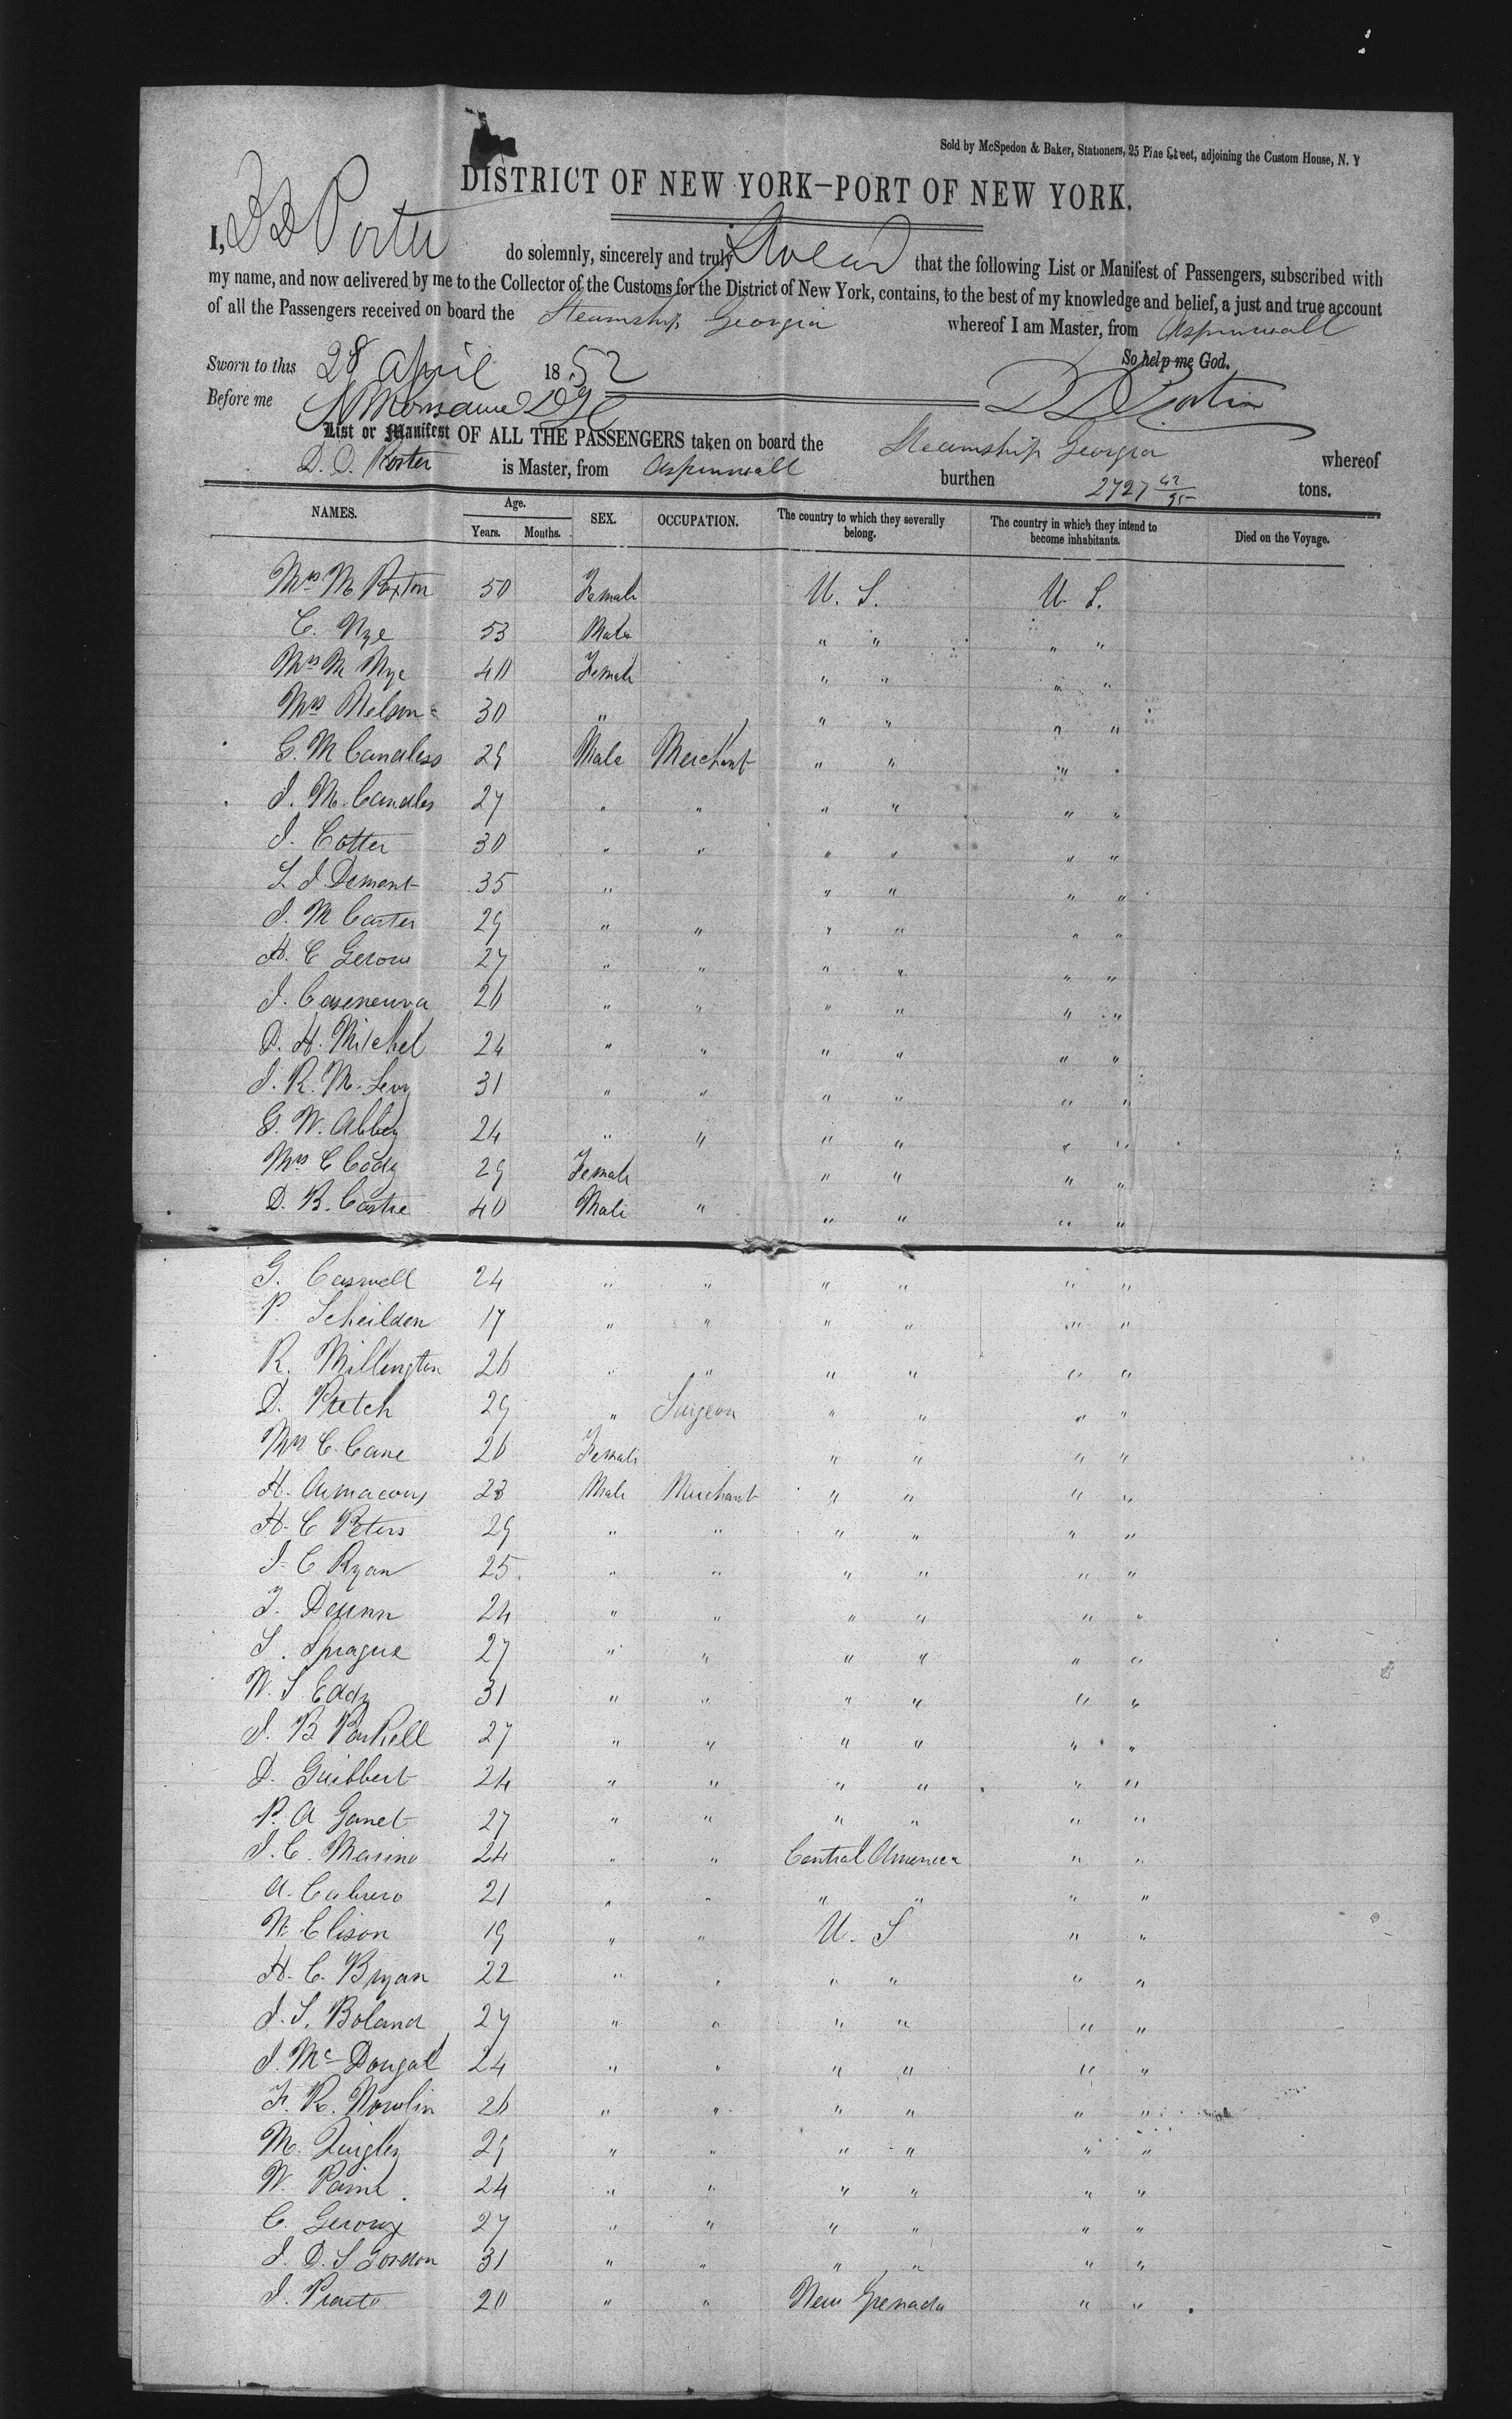 Sold by McSpedon & Baker, Stationers, 25 Pine Street, adjoining the Custom House, N. Y
DISTRICT OF NEW YORK—PORT OF NEW YORK.
I, D D Porter do solemnly, sincerely and truly Swear that the following List or Manifest of Passengers, subscribed with
my name, and now delivered by me to the Collector of the Customs for the District of New York, contains, to the best of my knowledge and belief, a just and true account
of all the Passengers received on board the Steamship Georgia whereof I am Master, from Aspinwall
So help me God.
Sworn to this 28 April 1852
Before me D D Porter
List or Manifest OF ALL THE PASSENGERS taken on board the Steamship Georgia whereof
D. D. Porter is Master, from Aspinwall burthen 2727 42/95 tons.
NAMES. Age. Years. Months. SEX. OCCUPATION. The country to which they severally belong. The country in which they intend to become inhabitants. Died on the Voyage.
Mrs M Paxton 50 Female U. S. U. S.
C. Nye 53 Male " " " "
Mrs M Nye 40 Female " " " "
Mrs Nelson 30 " " " " "
G. McCandless 29 Male Merchant " " " "
J. McCandles 27 " " " " " "
J. Cotter 30 " " " " " "
L J Dement 35 " " " " "
J. M Carter 29 " " " " " "
H. C Gerow 27 " " " " " "
J. Caseneuva 26 " " " " " "
D. H. Mitchel 24 " " " " " "
J. R. M. Levy 31 " " " " " "
G. W. Abbey 24 " " " " " "
Mrs C Cody 29 Female " " " "
D. B. Castre 40 Male " " " " "
G. Caswell 24 " " " " " "
P. Scheilden 17 " " " " " "
R. Millington 26 " " " " " "
D. Pretch 29 " Surgeon " " " "
Mrs C. Cane 26 Female " " " "
H. 23 Male Merchant " " " "
H. C Peters 29 " " " " " "
J. C Ryan 25 " " " " " "
T. Dunn 24 " " " " " "
S. Sprague 27 " " " " " "
W. S Eddy 31 " " " " " "
J. B 27 " " " " " "
D. Guibbert 24 " " " " " "
P. A Ganet 27 " " " " " "
J. C. Marino 24 " " Central America " "
A. Cabrero 21 " " " " " "
N. Clison 19 " " U. S " "
H. C. Bryan 22 " " " " " "
J. S. Boland 27 " " " " " "
J. McDougal 24 " " " " " "
F. R. Nowlin 26 " " " " " "
M. Quigley 29 " " " " " "
W. Paine 24 " " " " " "
C. Geroux 27 " " " " " "
J. D. S Gordon 31 " " " " " "
J. Prieto 20 " " New Grenada " "